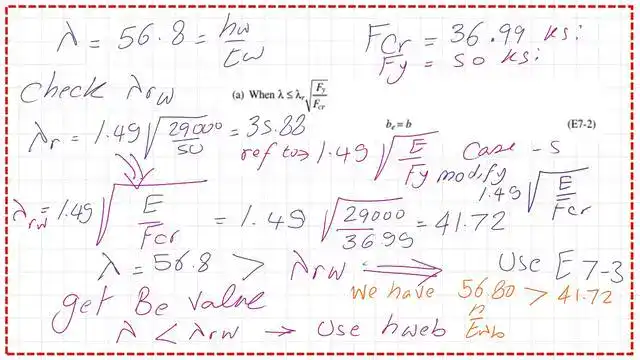 λ = 56.8 = hw/tw
Fcr = 36.99 ksi
Fy = 50 ksi
check λrw
(a) When λ ≤ λr √(Fy/Fcr)
be = b (E7-2)
λr = 1.49 √(29000/50) = 35.88
ref to > 1.49 √(E/Fy) Case - 5
modify 1.49 √(E/Fcr)
λrw = 1.49 √(E/Fcr) = 1.49 √(29000/36.99) = 41.72
λ = 56.8 > λrw ⟹ Use E 7-3
get Be value
we have 56.80 > 41.72
λ < λrw → Use hweb